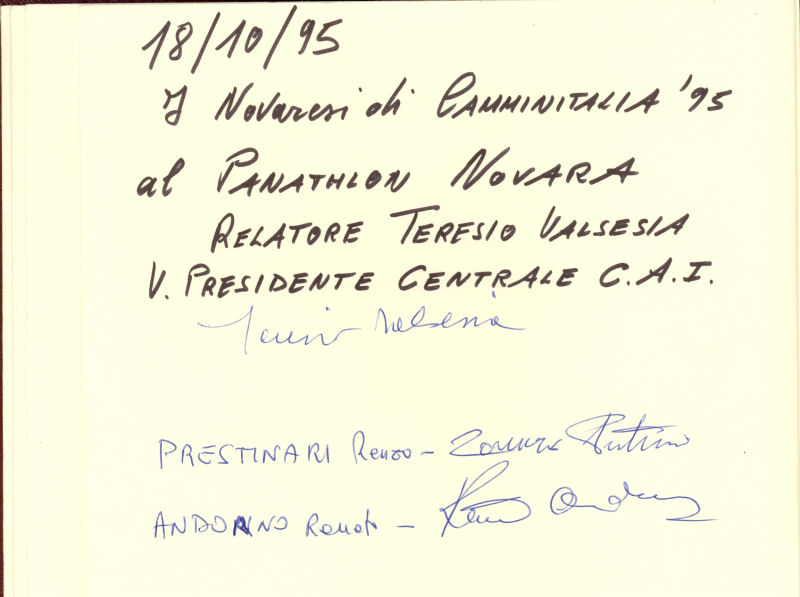 18/10/95
I Novaresi di CAMMINITALIA '95
al PANATHLON NOVARA
RELATORE TERESIO VALSESIA
V. PRESIDENTE CENTRALE C.A.I.
Teresio Valsesia
PRESTINARI Renzo -
ANDORNO Renato -